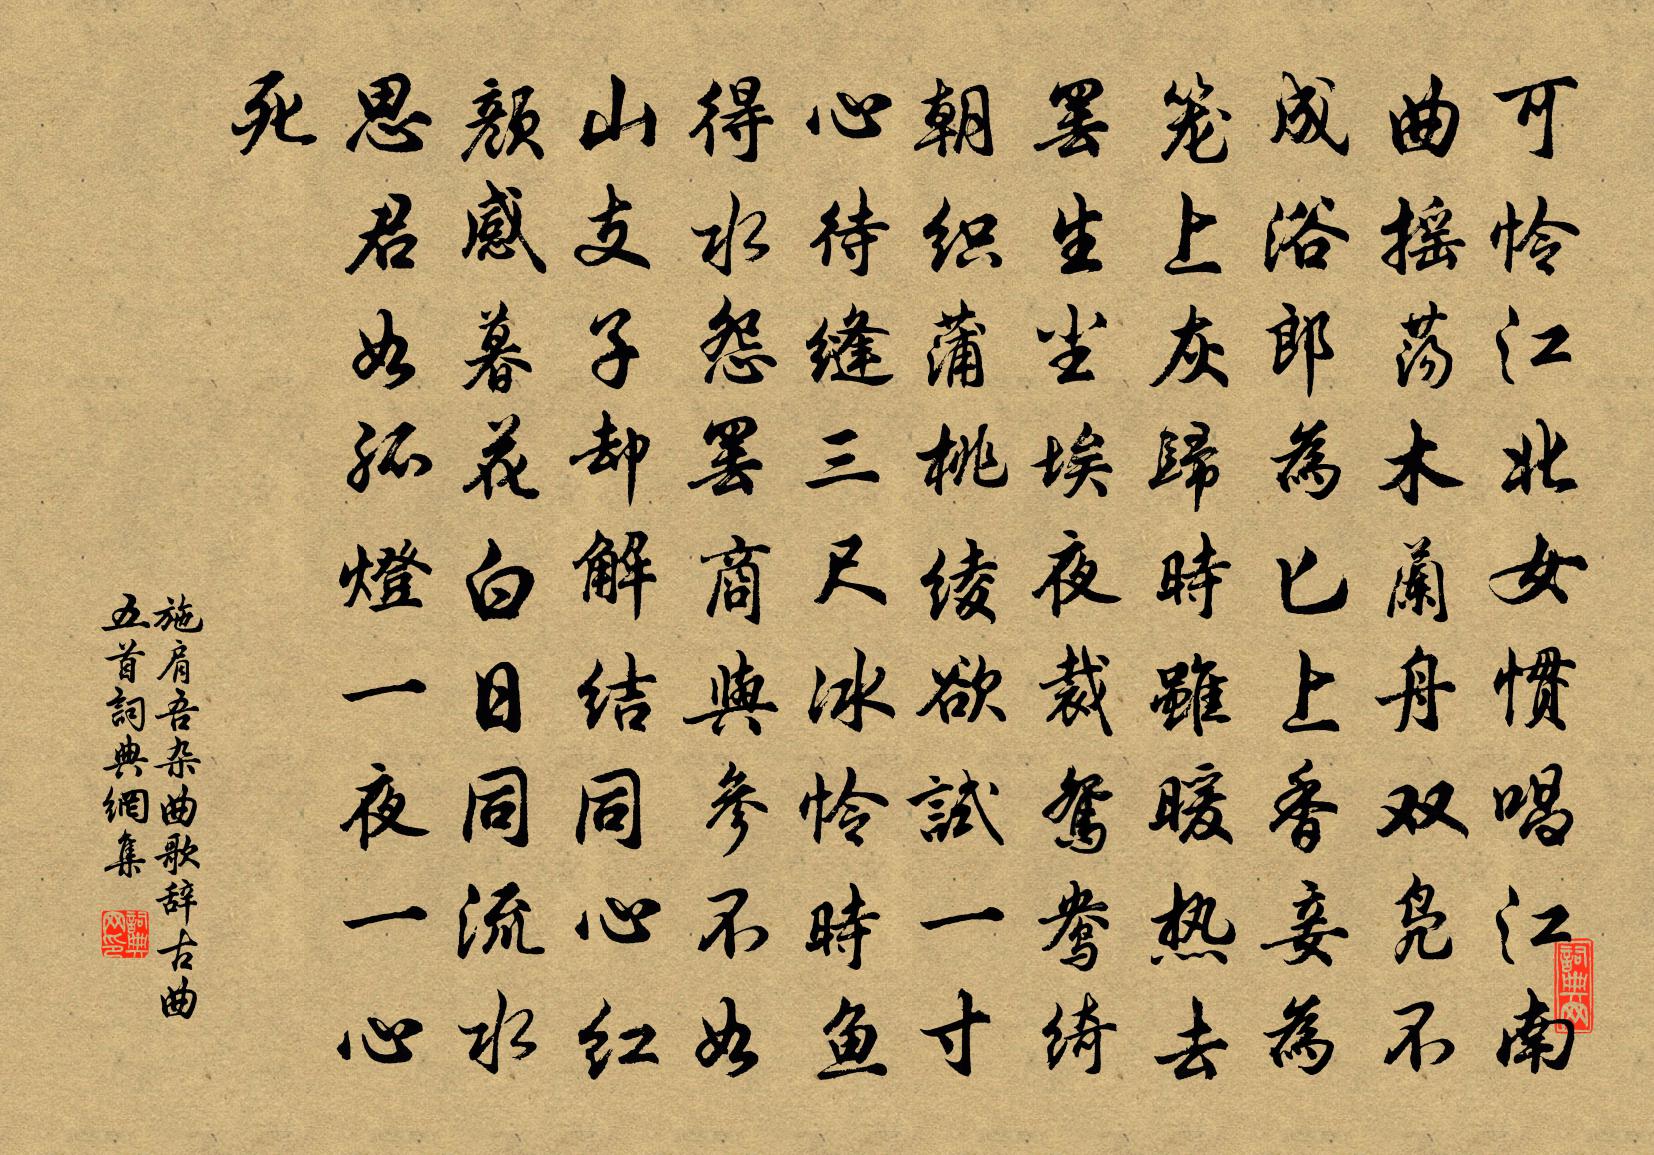 可怜江北女惯唱江南
曲摇荡木蘭舟双凫不
成浴郎為匕上香妾為
笼上灰歸時雖暖热去
罢生尘埃夜裁鸳鸯绮
朝织蒲桃绫欲試一寸
心待缝三尺冰怜時鱼
得水怨罢商與參不如
山支子却解结同心红
颜感暮花白日同流水
思君如孤燈一夜一心
死
施肩吾杂曲歌辞古曲
五首詞典網集
詞典网
詞典网印